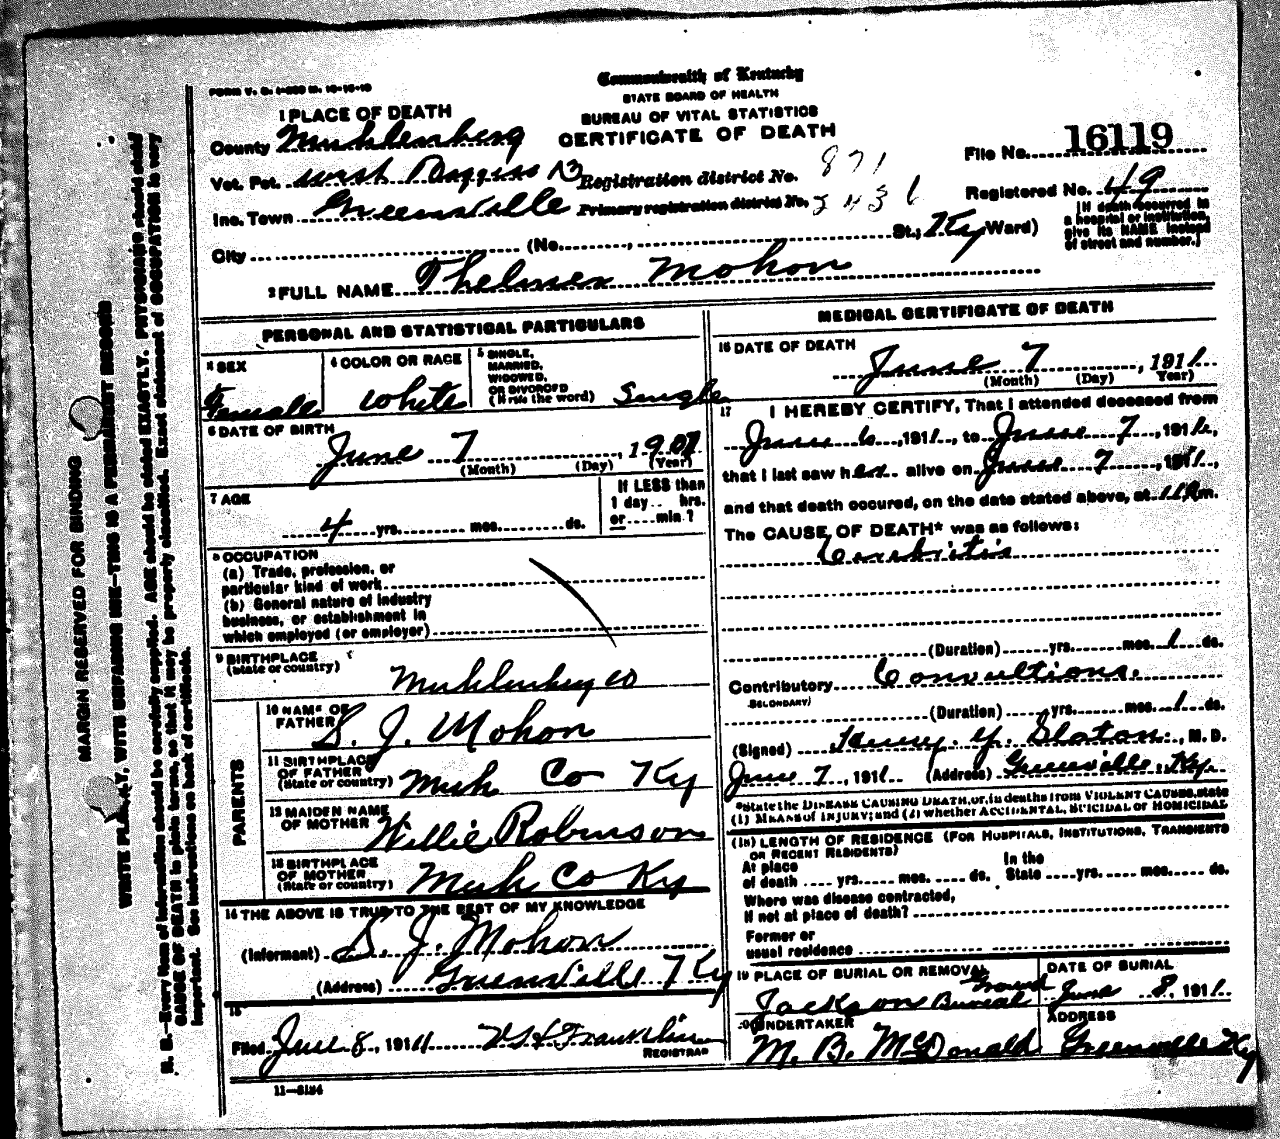 FORM V. S. 1-200 M. 10-15-10
Commonwealth of Kentucky
STATE BOARD OF HEALTH
BUREAU OF VITAL STATISTICS
CERTIFICATE OF DEATH
1 PLACE OF DEATH
County Muhlenberg
Vot. Pct. West B Registration district No. 871
Inc. Town Greenville Primary registration district No. 2436
City (No. , St.; Ky Ward)
File No. 16119
Registered No. 49
[If death occurred in
a hospital or institution,
give its NAME instead
of street and number.]
2 FULL NAME Mohon
PERSONAL AND STATISTICAL PARTICULARS
3 SEX
Female
4 COLOR OR RACE
White
5 SINGLE,
MARRIED,
WIDOWED,
OR DIVORCED
(Write the word) Single
6 DATE OF BIRTH
June 7, 1907
(Month) (Day) (Year)
7 AGE
4 yrs. mos. ds.
If LESS than
1 day .. hrs.
or .... min ?
8 OCCUPATION
(a) Trade, profession, or
particular kind of work
(b) General nature of industry
business, or establishment in
which employed (or employer)
9 BIRTHPLACE
(State or country)
Muhlenberg co
PARENTS
10 NAME OF
FATHER
S. J. Mohon
11 BIRTHPLACE
OF FATHER
(State or country) Muh Co Ky
12 MAIDEN NAME
OF MOTHER
Willie Robinson
13 BIRTHPLACE
OF MOTHER
(State or country) Muh Co Ky
14 THE ABOVE IS TRUE TO THE BEST OF MY KNOWLEDGE
(Informant) S. J. Mohon
(Address) Greenville Ky
15
Filed June 8, 1911 Franklin
REGISTRAR
11-6184
MEDICAL CERTIFICATE OF DEATH
16 DATE OF DEATH
June 7, 1911
(Month) (Day) (Year)
17 I HEREBY CERTIFY, That I attended deceased from
June 6, 1911, to June 7, 1911,
that I last saw her alive on June 7, 1911,
and that death occured, on the date stated above, at 11 P m.
The CAUSE OF DEATH* was as follows:
(Duration) yrs. mos. 1 ds.
Contributory Convultions.
SECONDARY)
(Duration) yrs. mos. 1 ds.
(Signed) Henry. Y. Slaton., M. D.
June 7, 1911 (Address) Greenville, Ky.
*State the DISEASE CAUSING DEATH, or, in deaths from VIOLENT CAUSES, state
(1) MEANS of INJURY; and (2) whether ACCIDENTAL, SUICIDAL or HOMICIDAL
(18) LENGTH OF RESIDENCE (FOR HOSPITALS, INSTITUTIONS, TRANSIENTS
OR RECENT RESIDENTS)
At place In the
of death .... yrs. mos. ds. State yrs. mos. ds.
Where was disease contracted,
if not at place of death?
Former or
usual residence
19 PLACE OF BURIAL OR REMOVAL
Jackson Burial Ground
DATE OF BURIAL
June 8, 1911
20 UNDERTAKER
M. B. McDonald
ADDRESS
Greenville Ky
MARGIN RESERVED FOR BINDING
WRITE PLAINLY, WITH UNFADING INK—THIS IS A PERMANENT RECORD
N. B.—Every item of information should be carefully supplied. AGE should be stated EXACTLY. PHYSICIANS should state
CAUSE OF DEATH in plain terms, so that it may be properly classified. Exact statement of OCCUPATION is very
important. See instructions on back of certificate.